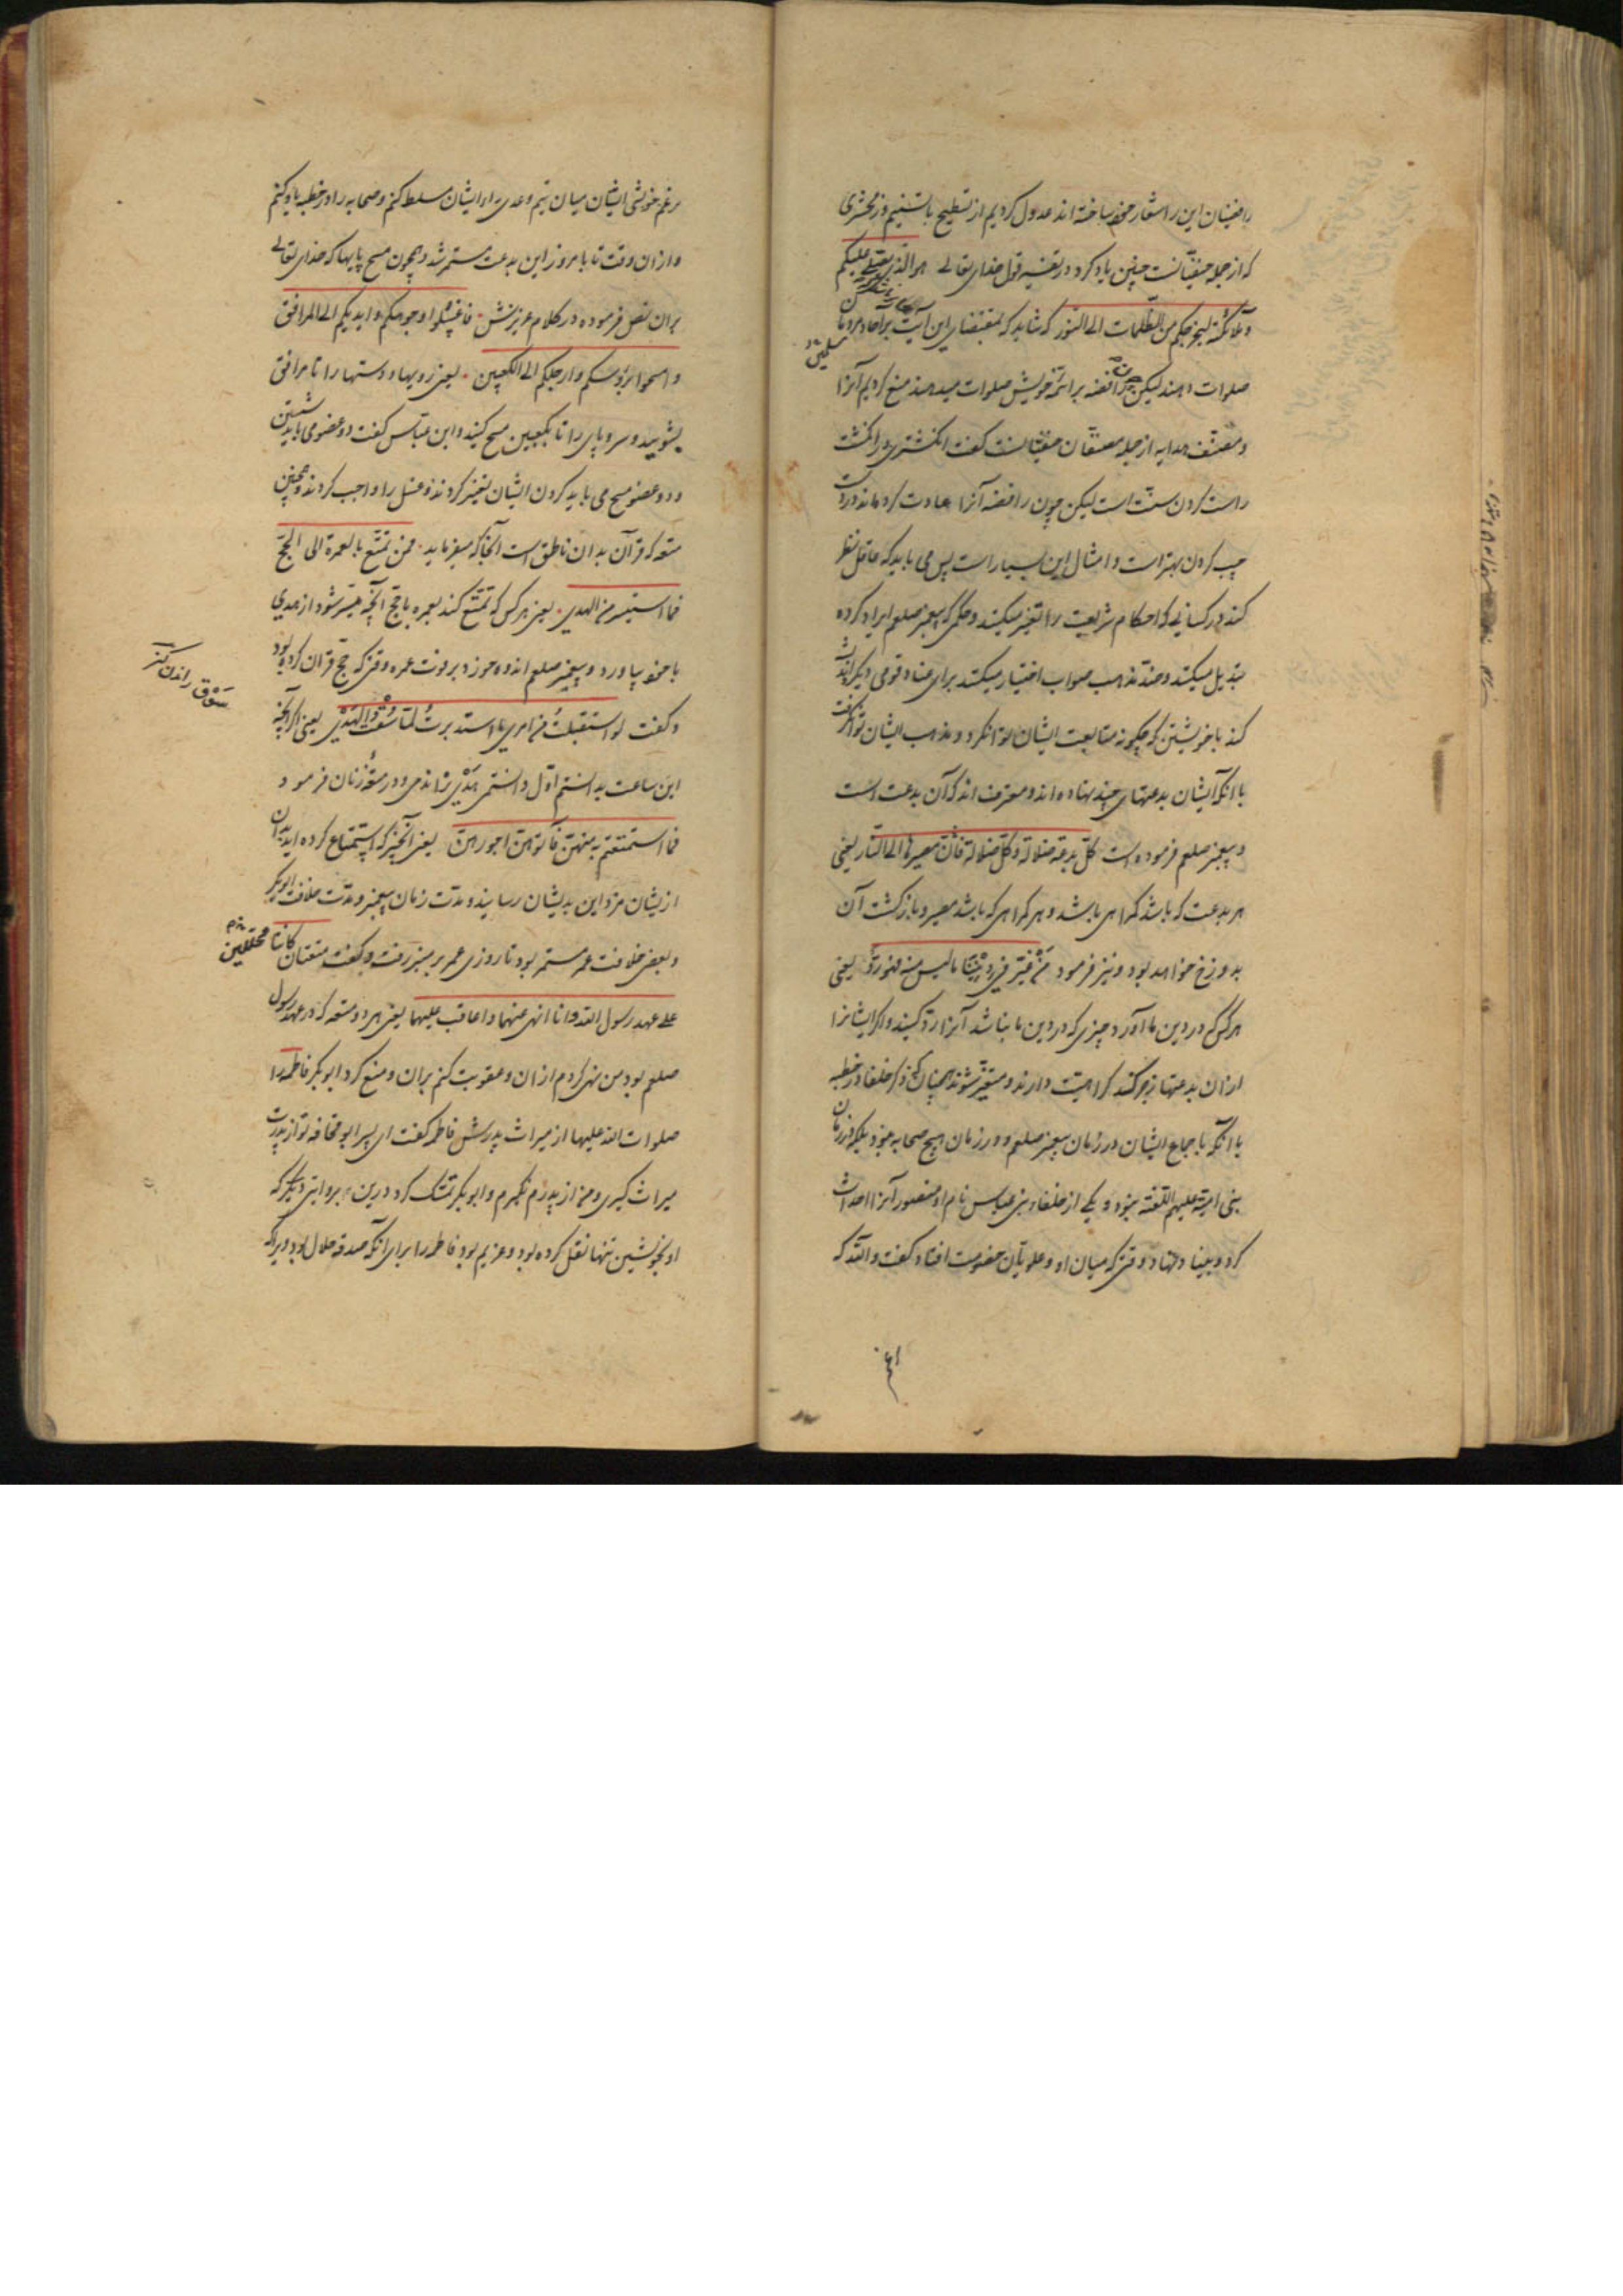 رافضیان این را شعار خود ساخته اند عدول کردیم از تسطیح با تسنیم و زمخشری
که از جمله حنفیانست چنین یاد کرد در تفسیر قول خدای تعالی هو الذی یصلی علیکم
و ملائکته لیخرجکم من الظلمات الی النور که شاید که بمقتضای این آیت بر آحاد مردمان
مسلمین
صلوات دهند لیکن چون رافضه بر ائمه خویش صلوات میدهند منع کردیم آنرا
و مصنف هدایه از جمله مصنفان حنفیانست گفت انگشتری در انگشت
راست کردن سنت است لیکن چون رافضه آنرا عادت کرده اند در دست
چپ کردن بهتر است و امثال این بسیار است پس می باید که عاقل نظر
کند در کسانی که احکام شریعت را تغییر میکنند و حکمی که پیغمبر صلعم ایراد کرده
تبدیل میکنند و ضد مذهب صواب اختیار میکنند برای عناد قومی دیگر اندیشه
کند با خویشتن که چگونه متابعت ایشان تواند کرد و مذهب ایشان تواند گرفت
با آنکه ایشان بدعتهای چند نهاده اند و معترف اند که آن بدعت است
و پیغمبر صلعم فرموده است کل بدعة ضلالة و کل ضلالة فان مصیرها الی النار یعنی
هر بدعت که باشد گمراهی باشد و هر گمراهی که باشد مصیر و بازگشت آن
بدوزخ خواهد بود و نیز فرمود من فی دیننا ما لیس منه فهو رد یعنی
هر کس که در دین ما آورد چیزی که در دین ما نباشد آنرا رد کنید و اگر ایشانرا
از آن بدعتها زجر کنند کراهیت دارند و متغیر شوند همچنان که ذکر خلفا در خطبه
با آنکه با جماع ایشان در زمان پیغمبر صلعم و در زمان هیچ صحابه نبود بلکه در زمان
بنی امیه علیهم اللعنه نبود و یکی از خلفاء بنی عباس نام او منصور آنرا احداث
کرد و بنیاد نهاد وقتی که میان او و علویان خصومت افتاد گفت والله که
برغم خویشی ایشان میان تیم و عدی بر ایشان مسلط کنم و صحابه را در خطبه یاد کنم
و از آن وقت تا بامروز این بدعت مستمر شد و همچون مسح پایها که خدای تعالی
بر آن نص فرموده در کلام عزیزش فاغسلوا وجوهکم و ایدیکم الی المرافق
و امسحوا برؤسکم و ارجلکم الی الکعبین یعنی رویها و دستها را تا مرافق
بشویید و سر و پای را تا بکعبین مسح کنید و ابن عباس گفت دو عضو می باید شستن
و دو عضو مسح می باید کردن ایشان تغییر کردند و غسل را واجب کردند و همچنین
متعه که قرآن بدان ناطق است آنجا که میفرماید فمن تمتع بالعمرة الی الحج
فما استیسر من الهدی یعنی هر کس که تمتع کند بعمره با حج آنچه میسر شود از هدی
با خود بیاورد و پیغمبر صلعم اندوه خورد بر فوت عمره وقتی که حج قران کرده بود
سوق راندن
و گفت لو استقبلت من امری ما استدبرت لما سقت الهدی یعنی اگر آنچه
این ساعت بدانستم اول دانستمی هدی نراندمی و در متعه زنان فرمود
فما استمتعتم به منهن فآتوهن اجورهن یعنی آنچیز که استمتاع کرده اید بدان
از ایشان مزد این بدیشان رسانید و مدت زمان پیغمبر و مدت خلافت ابوبکر
و بعض خلافت عمر مستمر بود تا روزی عمر بر منبر رفت و گفت متعتان کانتا
محللتین
علی عهد رسول الله و انا انهی عنهما و اعاقب علیهما یعنی هر دو متعه که در عهد رسول
صلعم بود من نهی کردم از آن و عقوبت کنم بر آن و منع کرد ابوبکر فاطمه را
صلوات الله علیها از میراث پدرش فاطمه گفت ای پسر ابو قحافه تو از پدرت
میراث گیری و من از پدرم نگیرم و ابوبکر تمسک کرد درین بروایتی دیگر که
او بخویشتن تنها نقل کرده بود و غریم بود فاطمه را برای آنکه صدقه حلال بود ویرا که